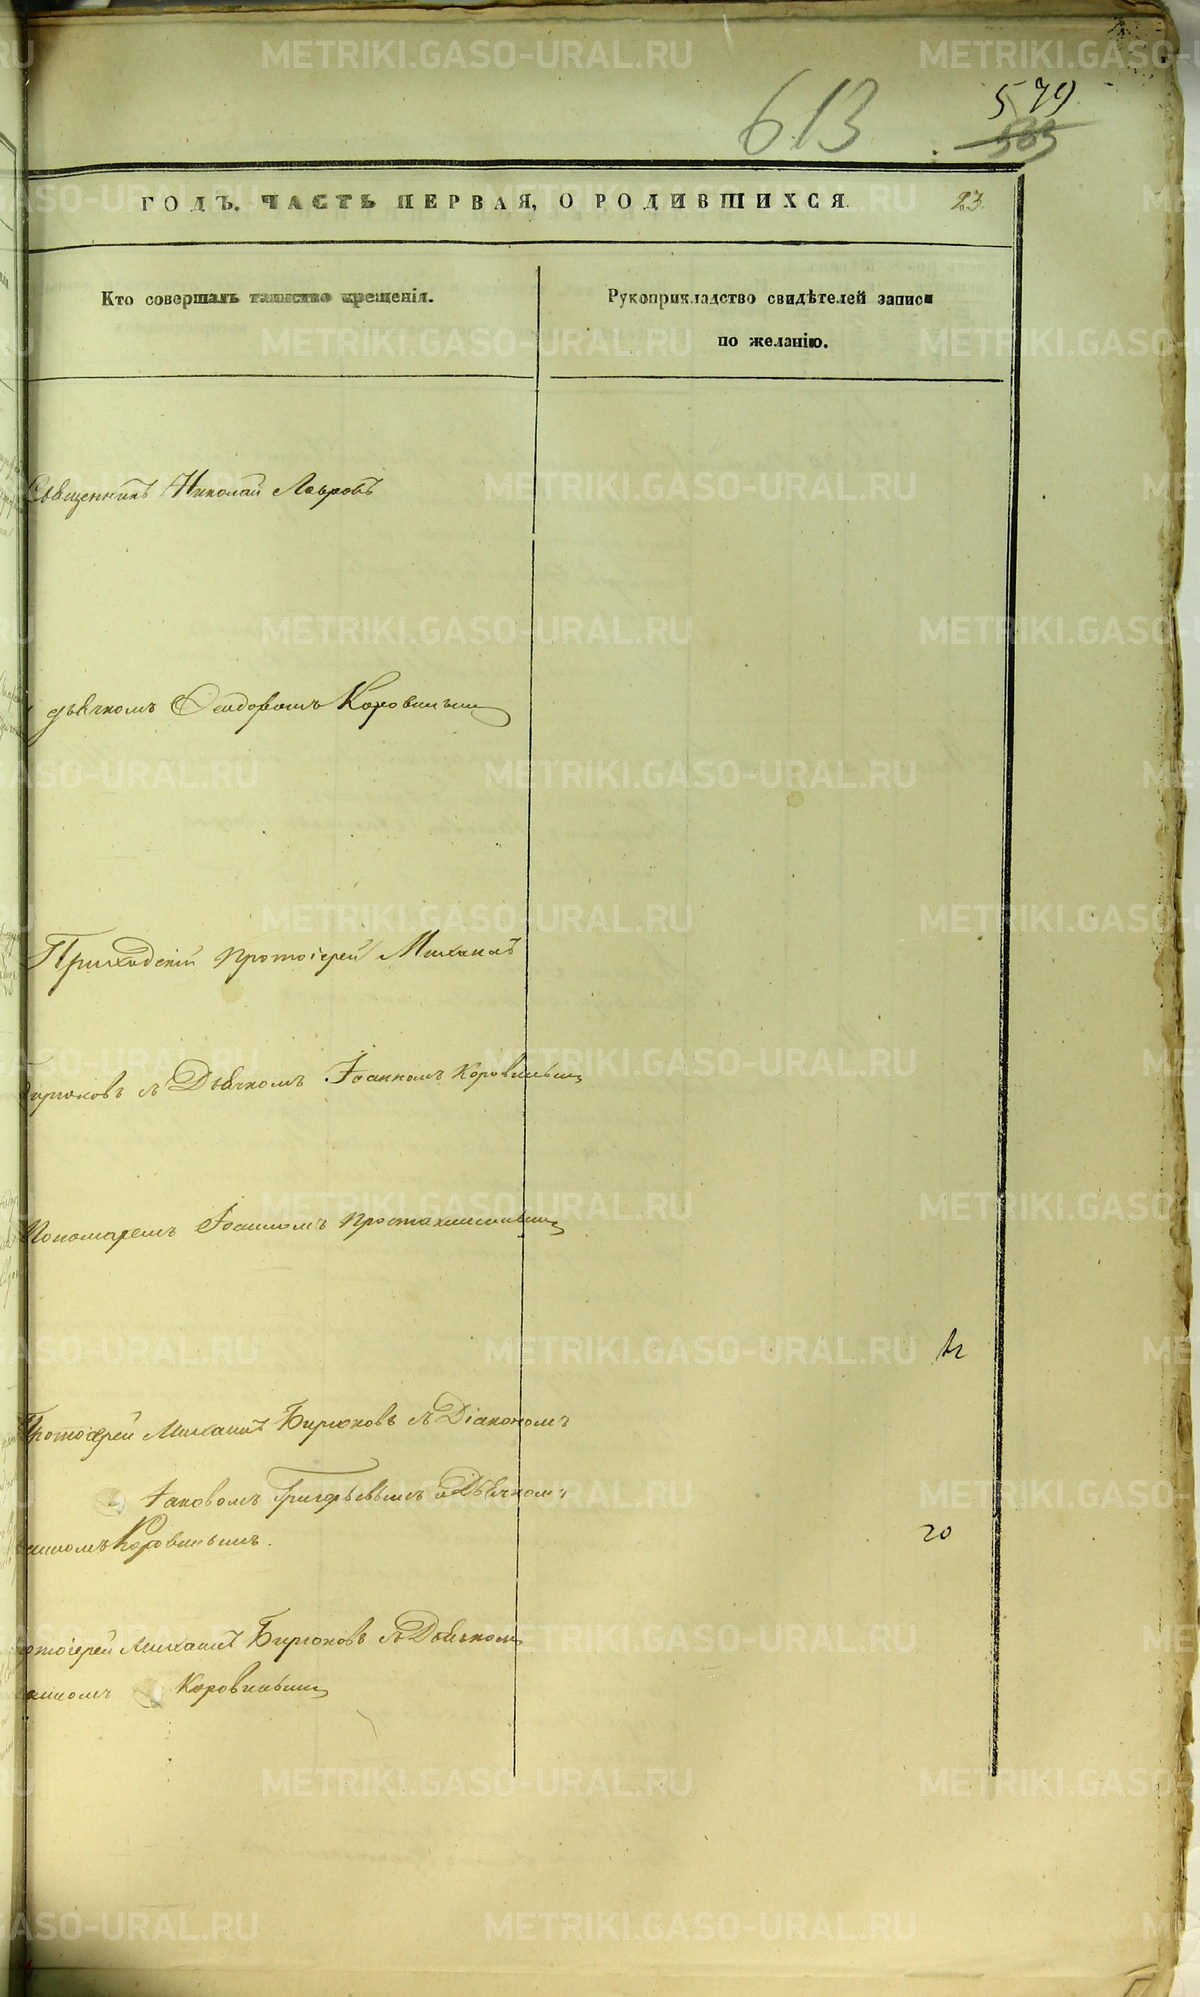 613
579
565
ГОДЪ. ЧАСТЬ ПЕРВАЯ, О РОДИВШИХСЯ.
23.
Кто совершалъ таинство крещенія.
Рукоприкладство свидѣтелей записи
по желанію.
Священникъ Николай Лавровъ
дьячкомъ Феодоромъ Коровинымъ
Приходскій протоіерей Михаилъ
Бирюковъ съ Дьячкомъ Іоанномъ Коровинымъ
Пономаремъ
Протоіерей Михаилъ Бирюковъ съ Діакономъ
Іаковомъ Григорьевымъ и Дьячкомъ
Коровинымъ.
20
протоіерей Михаилъ Бирюковъ съ Дьячкомъ
Коровинымъ
METRIKI.GASO-URAL.RU